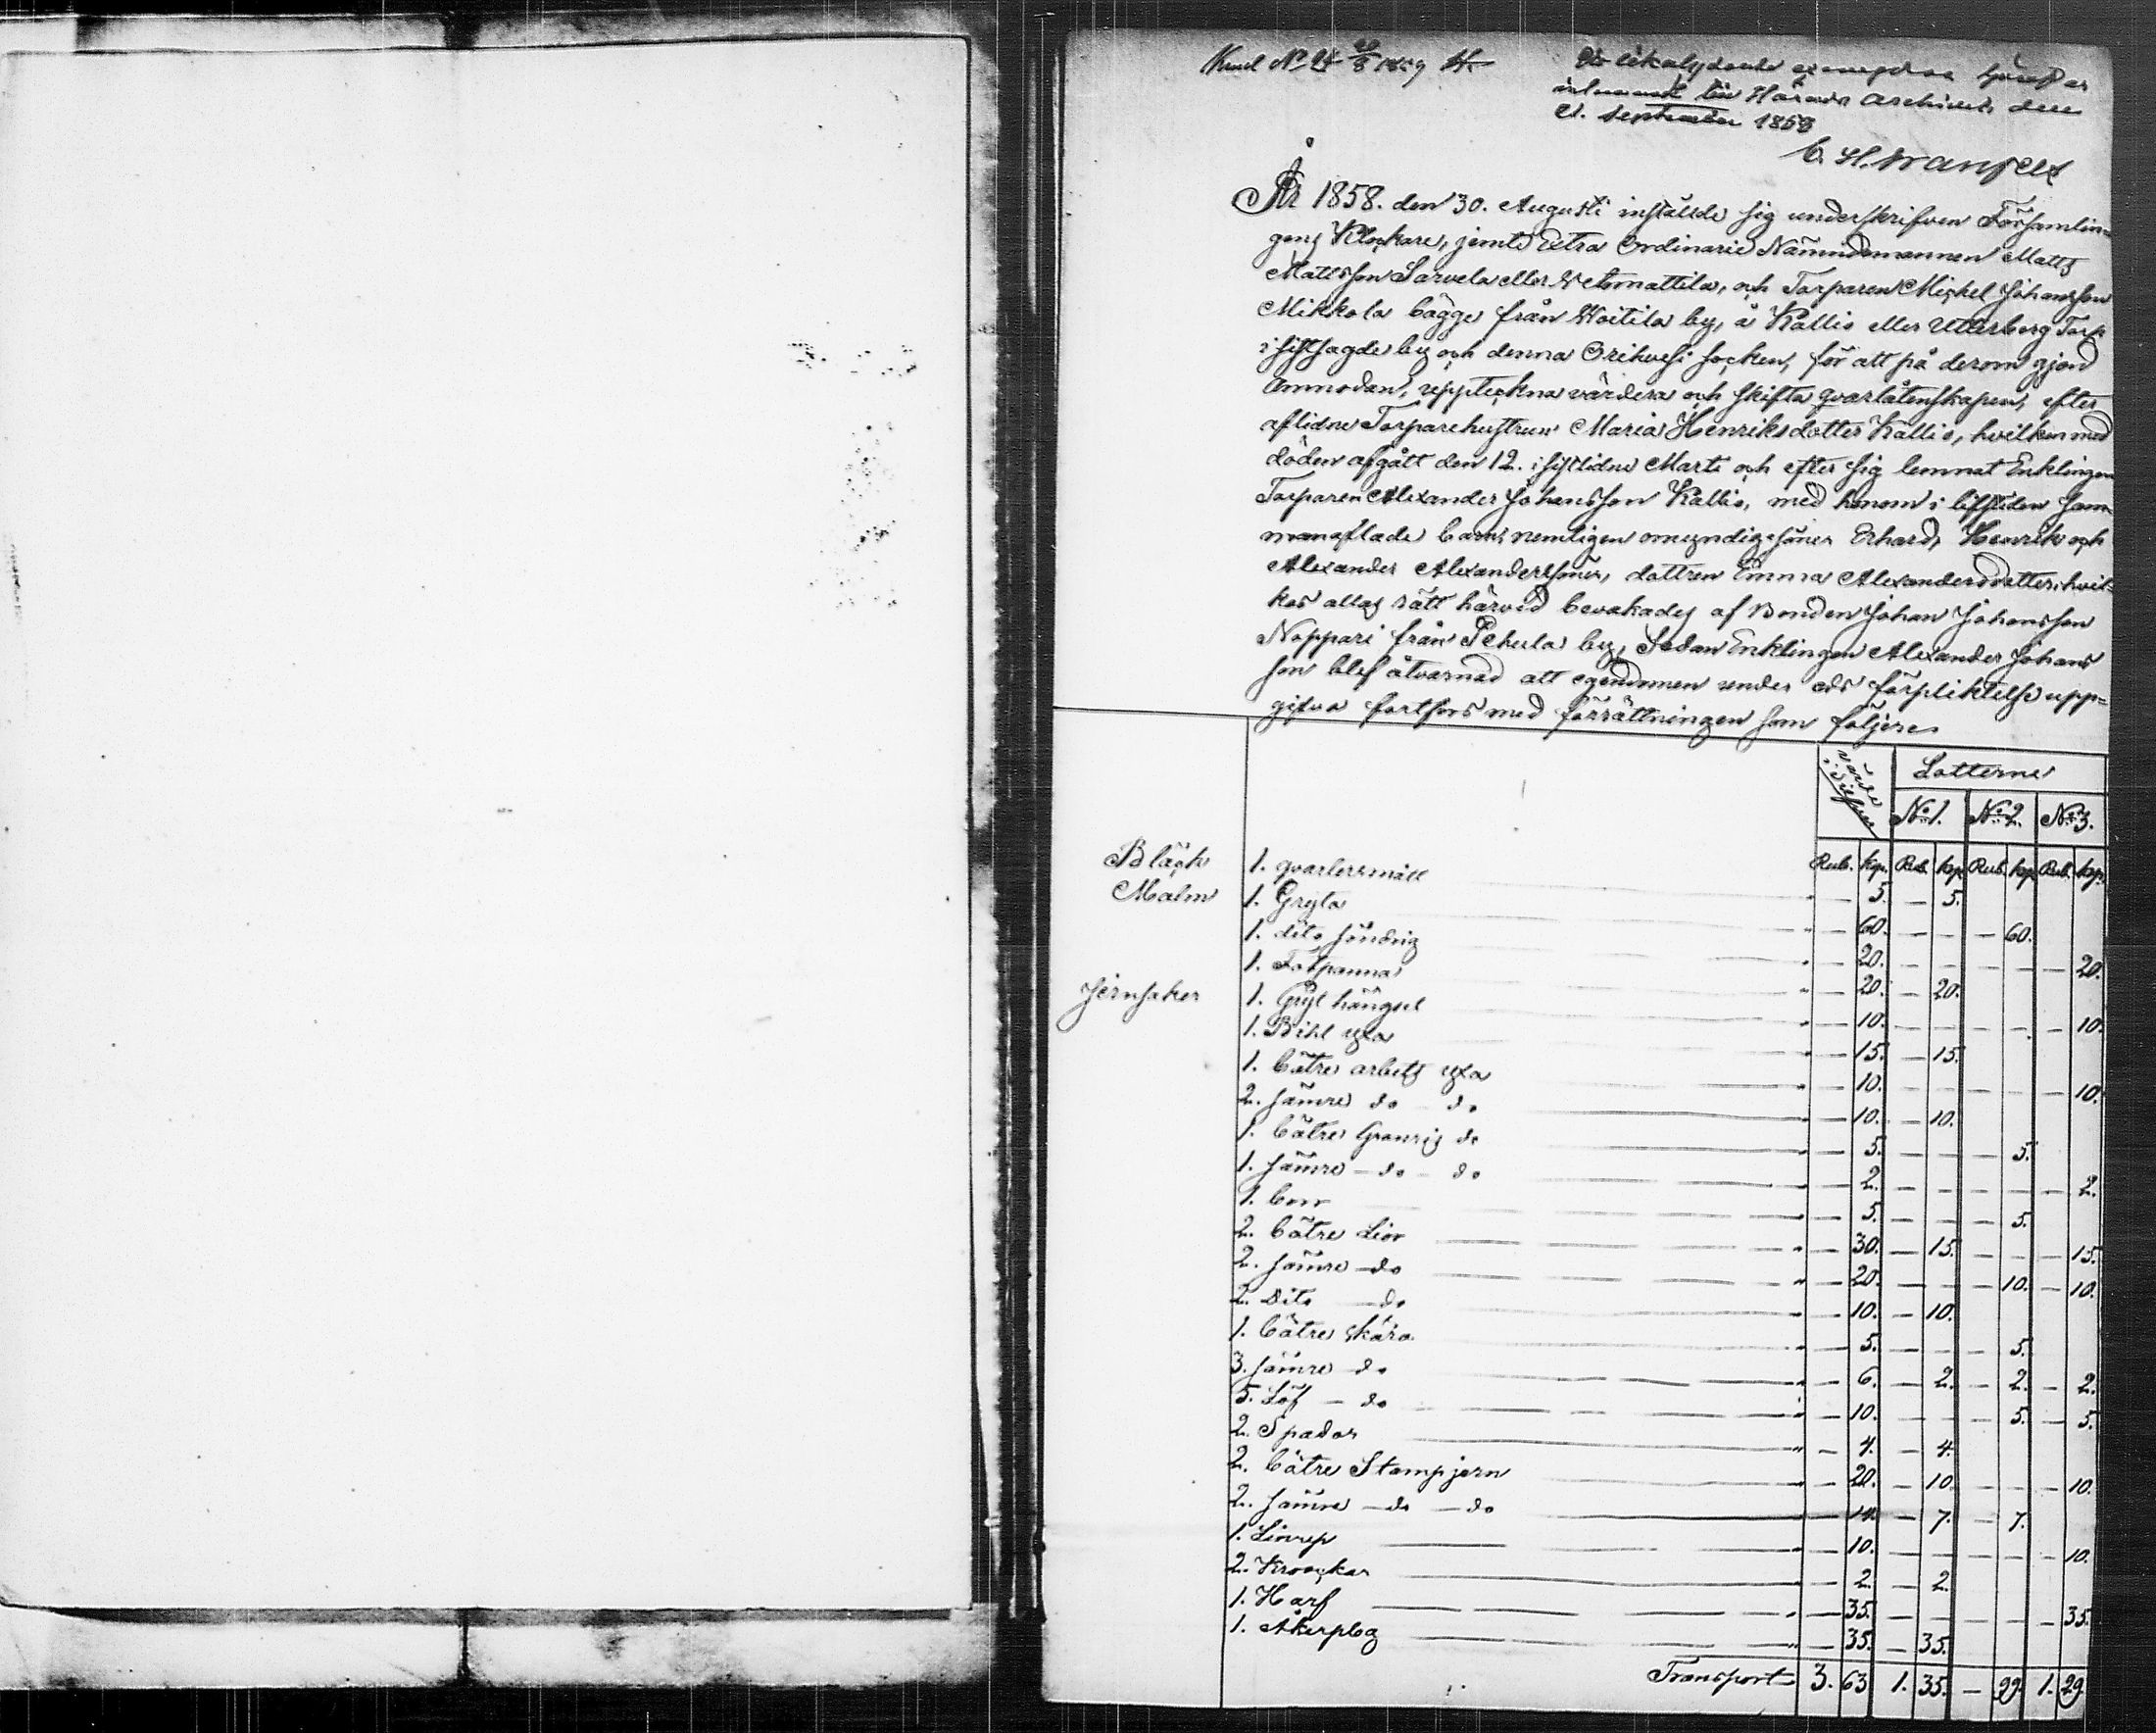 Ett likalydande exemplar häraf är
inlemnadt till Härads Archivet, den
21. September 1858
År 1858. den 30. Augusti inställde sig underskrifven Församlin-
gens Klockare, jemte Extra Ordinarie Nämndemannen Matts
Mattsson Sarvela eller Wetomattila, och Torparen Michel Johansson
Mikkola bägge från Woitila by, å Kallio eller Utterberg Torp
i sistsagde by och denna Orihvesi socken, för att på derom gjord
anmodan, uppteckna värdera och skifta qvarlåtenskapen, efter
aflidne Torparehustrun Maria Henriksdotter Kallio, hvilken med
döden afgått den 12. sistlidne Marti och efter sig lemnat Enklingen
Torparen Alexander Johansson Kallio, med honom i lifstiden sam-
manaflade barn; nemligen omyndige söner Erhard, Henrik och
Alexander Alexanderssöner, dottren Emma Alexandersdotter, hvil-
kas allas rätt härvid bevakades af Bonden Johan Johansson
Noppari från Pehula by, Sedan Enklingen Alexander Johans
son blef åtvarnad att egendomen under eds förpliktelse upp-
gifva fortfors med förrättningen som följer:
värde i Silfver Lotterne
No 1. No 2. No 3.
Rub. kop. Rub. kop. Rub. kop. Rub. kop.
Bläck 1. qvartersmått " — 5. — 5.
Malm 1. Gryta " — 60. — — — 60.
1. dito söndrig " — 20. — — — — — 20.
1. Fotpanna " — 20. — 20.
Jernsaker 1. Gryt hängsel " — 10. — — — — — 10.
1. Bihl yxa " — 15. — 15.
1. bätre arbets yxa " — 10. — — — — — 10.
2. sämre do do " — 10. — 10.
1. bätre Granris do " — 5. — — — 5.
1. sämre — do — do " — 2. — — — — — 2.
1. borr " — 5. — — — 5.
2. bätre Lior " — 30. — 15. — — — 15.
2. sämre — do " — 20. — — — 10. — 10.
2. Dito — do " — 10. — 10.
1. bätre skära " — 5. — — — 5.
3. sämre do " — 6. — 2. — 2. — 2.
5. Löf — do " — 10. — — — 5. — 5.
2. Spador " — 4. — 4.
2. bätre Stampjern " — 20. — 10. — — — 10.
2. sämre — do — do " — 14. — 7. — 7.
1. " — 10. — — — — — 10.
2. Krockar " — 2. — 2.
1. Harf " — 35. — — — — — 35.
1. Åkerplog " — 35. — 35.
Transport 3. 63 1. 35. — 99. 1. 29.